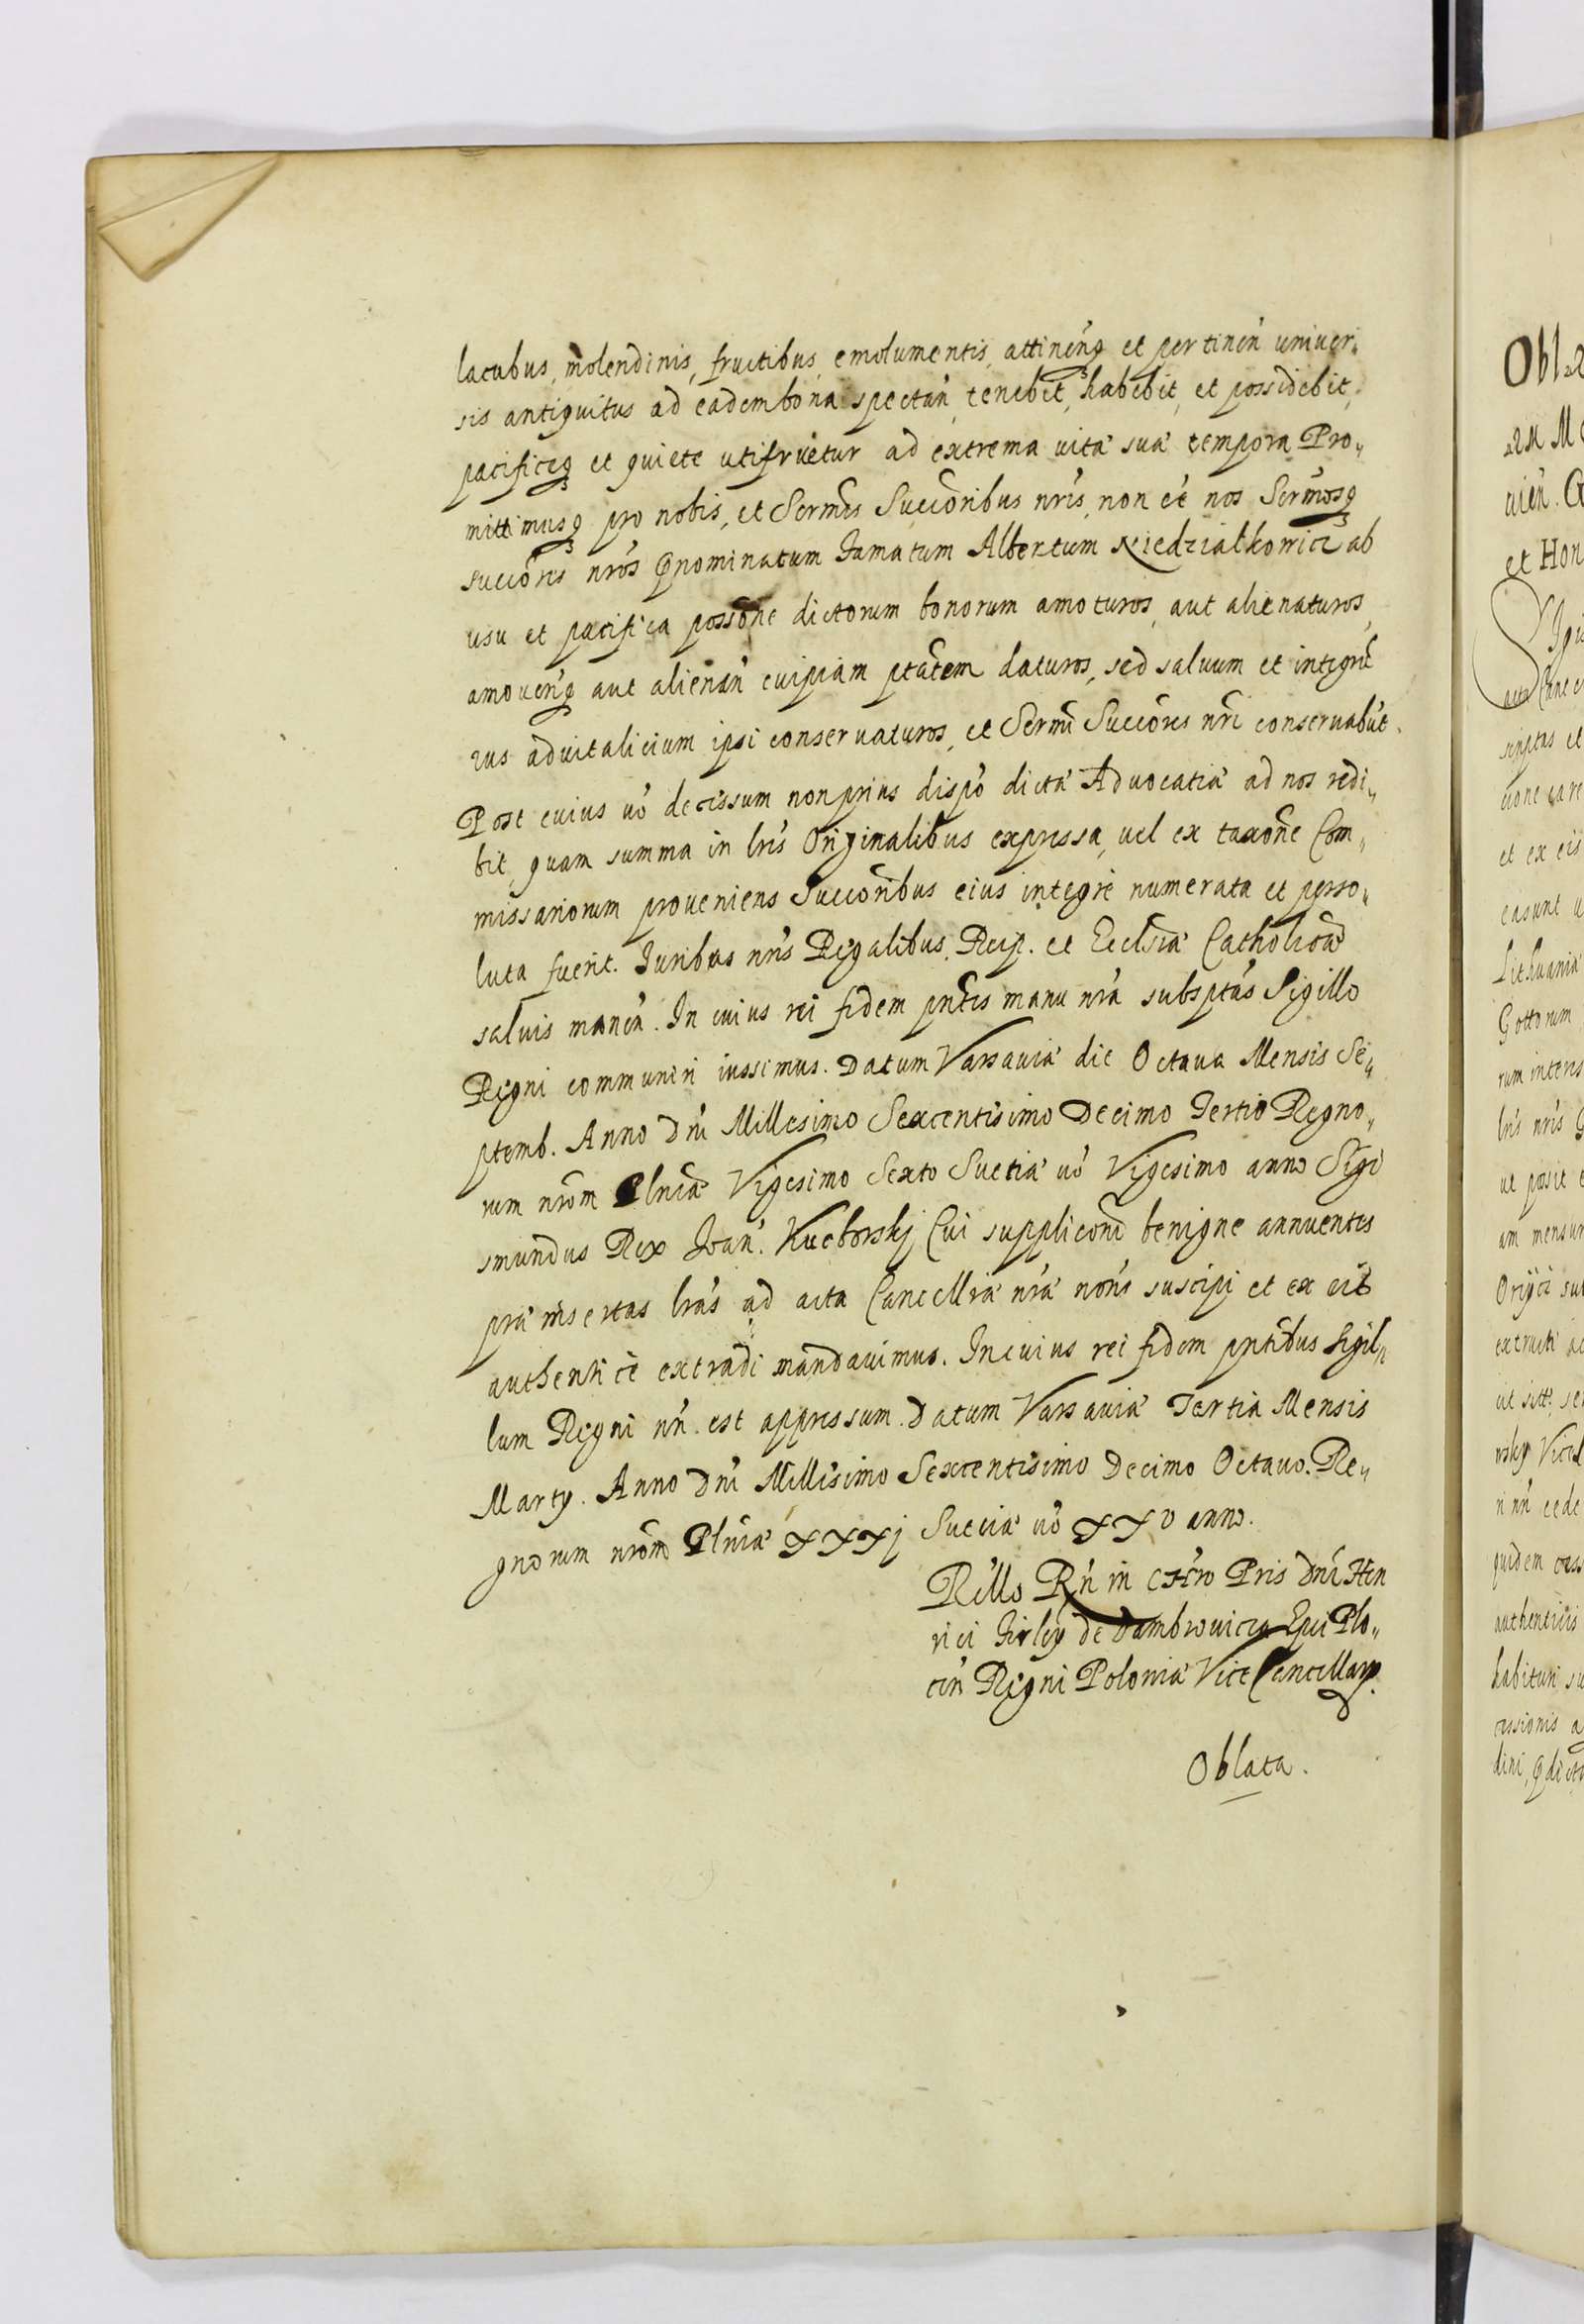 lacubus, molendinis, fructibus, emolumentis, attineńq et pertineń univer„
sis antiquitus ad eadem bona spectań, tenebit, habebit, et possidebit,
pacificeq et quiete utifruetur ad extrema vitæ suæ tempora Pro„
mittimusq pro nobis, et Sermis Succoribus nris, non ee nos Sermosq
succores nros pnominatum Famatum Albertum Niedziałkowicz ab
usu et pacifica possone dictorum bonorum amoturos, aut alienaturos,
amovenq aut alienań cuipiam ptatem daturos, sed salvum et integrū
ius advitalicium ipsi conservaturos, et Sermi Succores nri conservabūt.
Post cuius vo decessum non prius dispo dictæ Advocatiæ ad nos redi„
bit, quam summa in lris Originalibus expressa, vel ex taxone Com„
missariorum proveniens Succoribus eius integre numerata et perso„
luta fuerit. Iuribus nris Regalibus, Reip. et Ecclsiæ Catholicæ
salvis maneń. In cuius rei fidem pntes manu nra subsptas Sigillo
Regni communiri iussimus. Datum Varsaviæ die Octava Mensis Se„
ptemb. Anno Dni Millesimo Sexcentesimo Decimo Tertio Regno„
rum nrom Plniæ Vigesimo Sexto Suetiæ vo Vigesimo anno Sigi
smundus Rex Ioan. Kucborskj Cui suppliconi benigne annuentes
præinsertas lras ad acta Cancellriæ nræ suscipi et ex eis
authentice extradi mandavimus. In cuius rei fidem pntibus Sigil„
lum Regni nrī est appressum. Datum Varsaviæ Tertia Mensis
Marty. Anno Dni Millesimo Sexcentesimo Decimo Octavo. Re„
gnorum nrom Plniæ XXXj Sueciæ vo XXv anno.
Rello Rn in Chro Pris Dni Hen
rici Firley de Dambrovicza Epi Plo„
cen Regni Poloniæ Vice Cancellary.
Oblata.